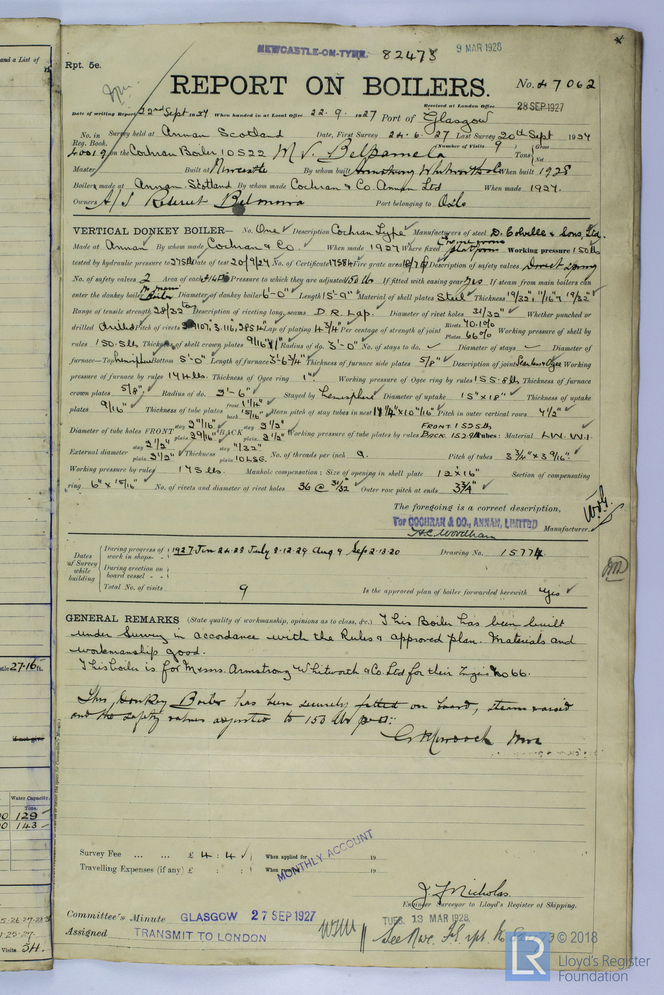 NEWCASTLE-ON-TYNE. 82473 9 MAR 1928
Rpt. 5e.
REPORT ON BOILERS. No. 47062
Received at London Office 28 SEP 1927
Date of writing Report 22nd Sept 1927 When handed in at Local Office 22. 9. 1927 Port of Glasgow
No. in Reg. Book. Survey held at Annan Scotland Date, First Survey 24. 6. 27 Last Survey 20th Sept 1927
on the Cochran Boiler 10522 M.V. Belpamela (Number of Visits 9) Tons Gross Net
Master Built at Newcastle By whom built Armstrong Whitworth & Co When built 1928
Boilers made at Annan. Scotland By whom made Cochran & Co Annan Ltd When made 1927.
Owners A/S Port belonging to Oslo
VERTICAL DONKEY BOILER— No. One Description Cochran Type Manufacturers of steel D. Colville & Sons, Ltd.
Made at Annan By whom made Cochran & Co. When made 1927 Where fixed platform Working pressure 150 lb
tested by hydraulic pressure to 275 lb Date of test 20/9/27 No. of Certificate 17584 Fire grate area Description of safety valves Direct spring
No. of safety valves 2 Area of each Pressure to which they are adjusted 150 lb If fitted with easing gear yes If steam from main boilers can
enter the donkey boiler Diameter of donkey boiler 6'-0" Length 15'-9" Material of shell plates Steel Thickness 19/32" 11/16" 19/32"
Range of tensile strength 28/32 tons Description of riveting long. seams D.R. Lap. Diameter of rivet holes 31/32" Whether punched or
drilled drilled Pitch of rivets Lap of plating 4 3/4 Per centage of strength of joint Rivets 70.1% Plates 66% Working pressure of shell by
rules 150.5 lbs Thickness of shell crown plates 9/16" Radius of do. 3'-0" No. of stays to do. Diameter of stays Diameter of
furnace—Top hemisphere Bottom 5'-0" Length of furnace 3'-6 3/4" Thickness of furnace side plates 5/8" Description of joint Working
pressure of furnace by rules 174 lbs. Thickness of Ogee ring 1" Working pressure of Ogee ring by rules 155.8 lb Thickness of furnace
crown plates 5/8" Radius of do. 3'-6" Stayed by hemisphere Diameter of uptake 15" x 18" Thickness of uptake
plates 9/16" Thickness of tube plates front back 15/16" Mean pitch of stay tubes in nest Pitch in outer vertical rows 4 1/2"
Diameter of tube holes FRONT stay 2 11/16" plain 2 9/16" BACK stay 2 1/2" plain 2 1/2" Working pressure of tube plates by rules FRONT 152.5 lb BACK Tubes: Material L.W.W.I.
External diameter stay 2 1/2" plain 2 1/2" Thickness stay plain 10 LSG No. of threads per inch 9. Pitch of tubes 3 3/4" x 3 9/16"
Working pressure by rules 175 lbs. Manhole compensation: Size of opening in shell plate 12" x 16" Section of compensating
ring 6" x 15/16" No. of rivets and diameter of rivet holes 36 @ 31/32" Outer row pitch at ends 3 3/4"
The foregoing is a correct description,
For COCHRAN & CO., ANNAN, LIMITED
Manufacturer.
Dates of Survey while building
During progress of work in shops - - 1927. Jun 24.28 July 8.12.29 Aug 9 Sep 2.13.20 Drawing No. 15774
During erection on board vessel - - -
Total No. of visits 9 Is the approved plan of boiler forwarded herewith yes
GENERAL REMARKS (State quality of workmanship, opinions as to class, &c.) This Boiler has been built
under Survey in accordance with the Rules & approved plan. Materials and
workmanship good.
This boiler is for Messrs. Armstrong Whitworth & Co Ltd for their No 66.
This Donkey Boiler has been securely fitted on board, steam raised
and the safety valves adjusted to 153 lbs
Survey Fee ... ... £ 4 : 4 : When applied for 19
Travelling Expenses (if any) £ : : When 19
MONTHLY ACCOUNT
J. F. Nicholas.
Engineer Surveyor to Lloyd's Register of Shipping.
Committee's Minute GLASGOW 27 SEP 1927 TUES. 13 MAR 1928
Assigned TRANSMIT TO LONDON See
LR © 2018
Lloyd's Register
Foundation
and a List of
27.16 ft.
Water Capacity.
Tons.
129
143
Visits 54.